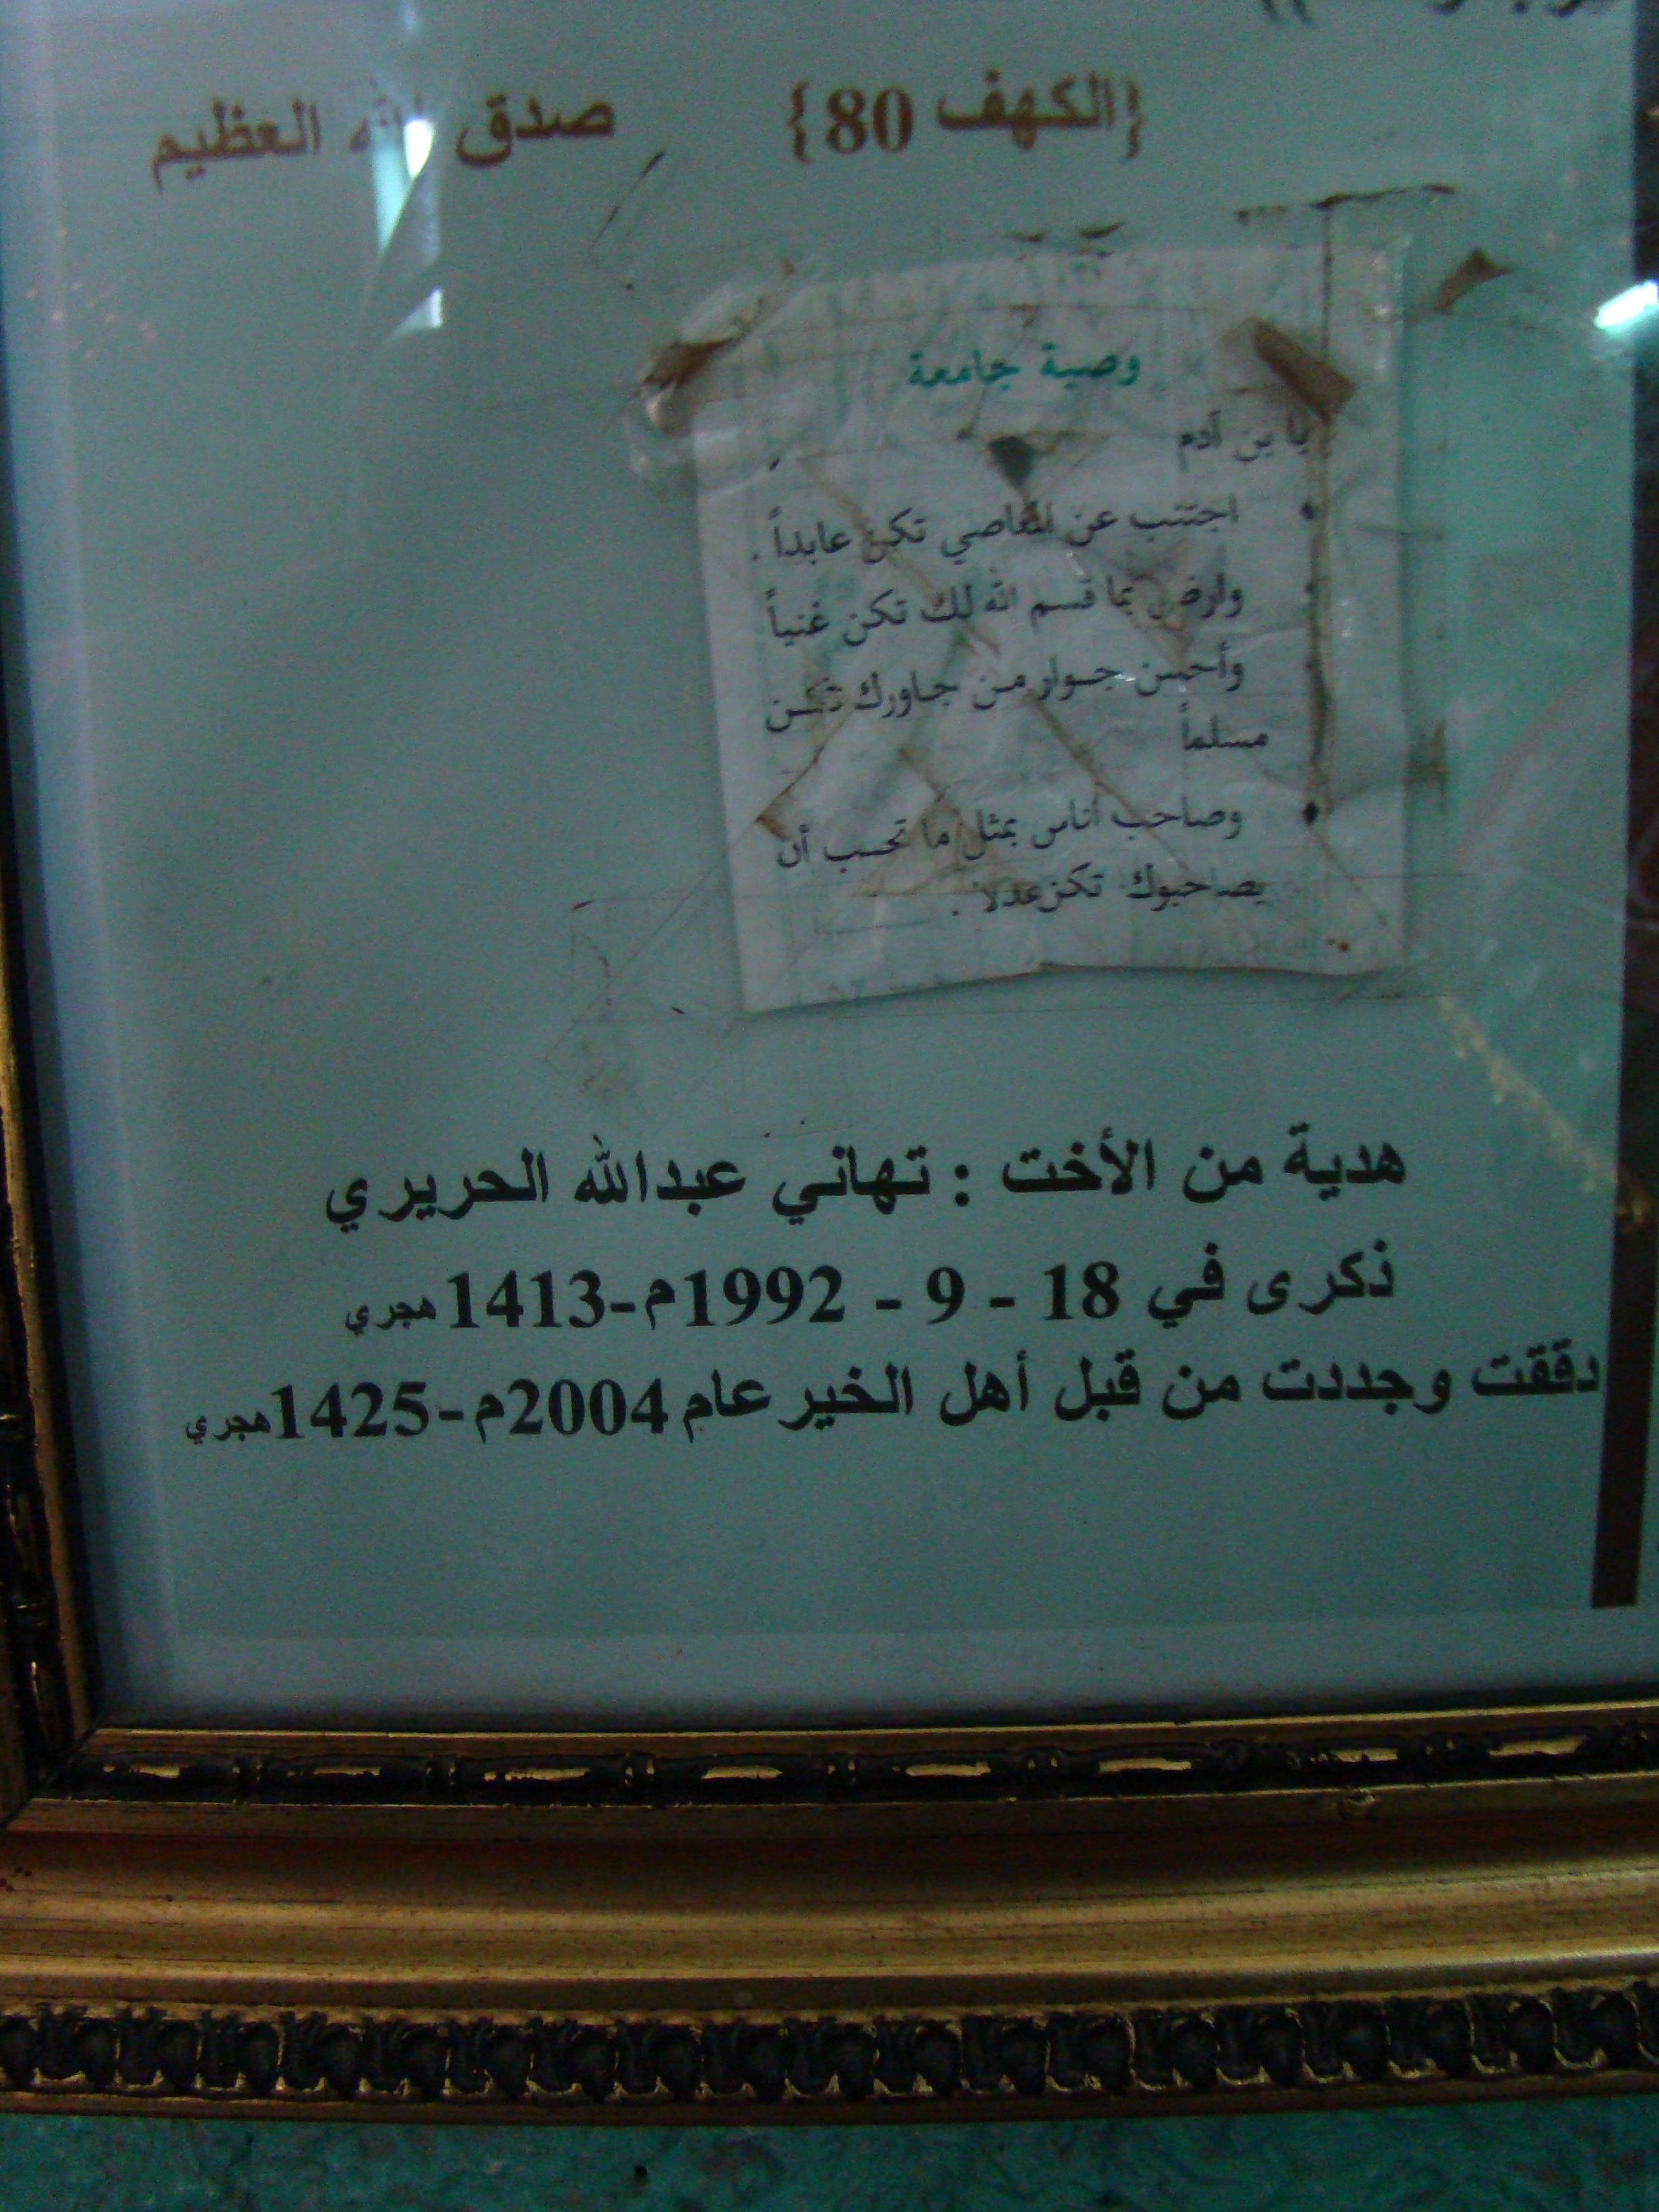 {الكهف 80} صدق الله العظيم
وصية جامعة
يا بن آدم
اجتنب عن المعاصي تكن عابداً .
وارض بما قسم الله لك تكن غنياً
وأحسن جوار من جاورك تكن
مسلماً
وصاحب الناس بمثل ما تحب أن
يصاحبوك تكن عدلاً .
هدية من الأخت : تهاني عبدالله الحريري
ذكرى في 18 - 9 - 1992م-1413هجري
دققت وجددت من قبل أهل الخير عام 2004م-1425هجري